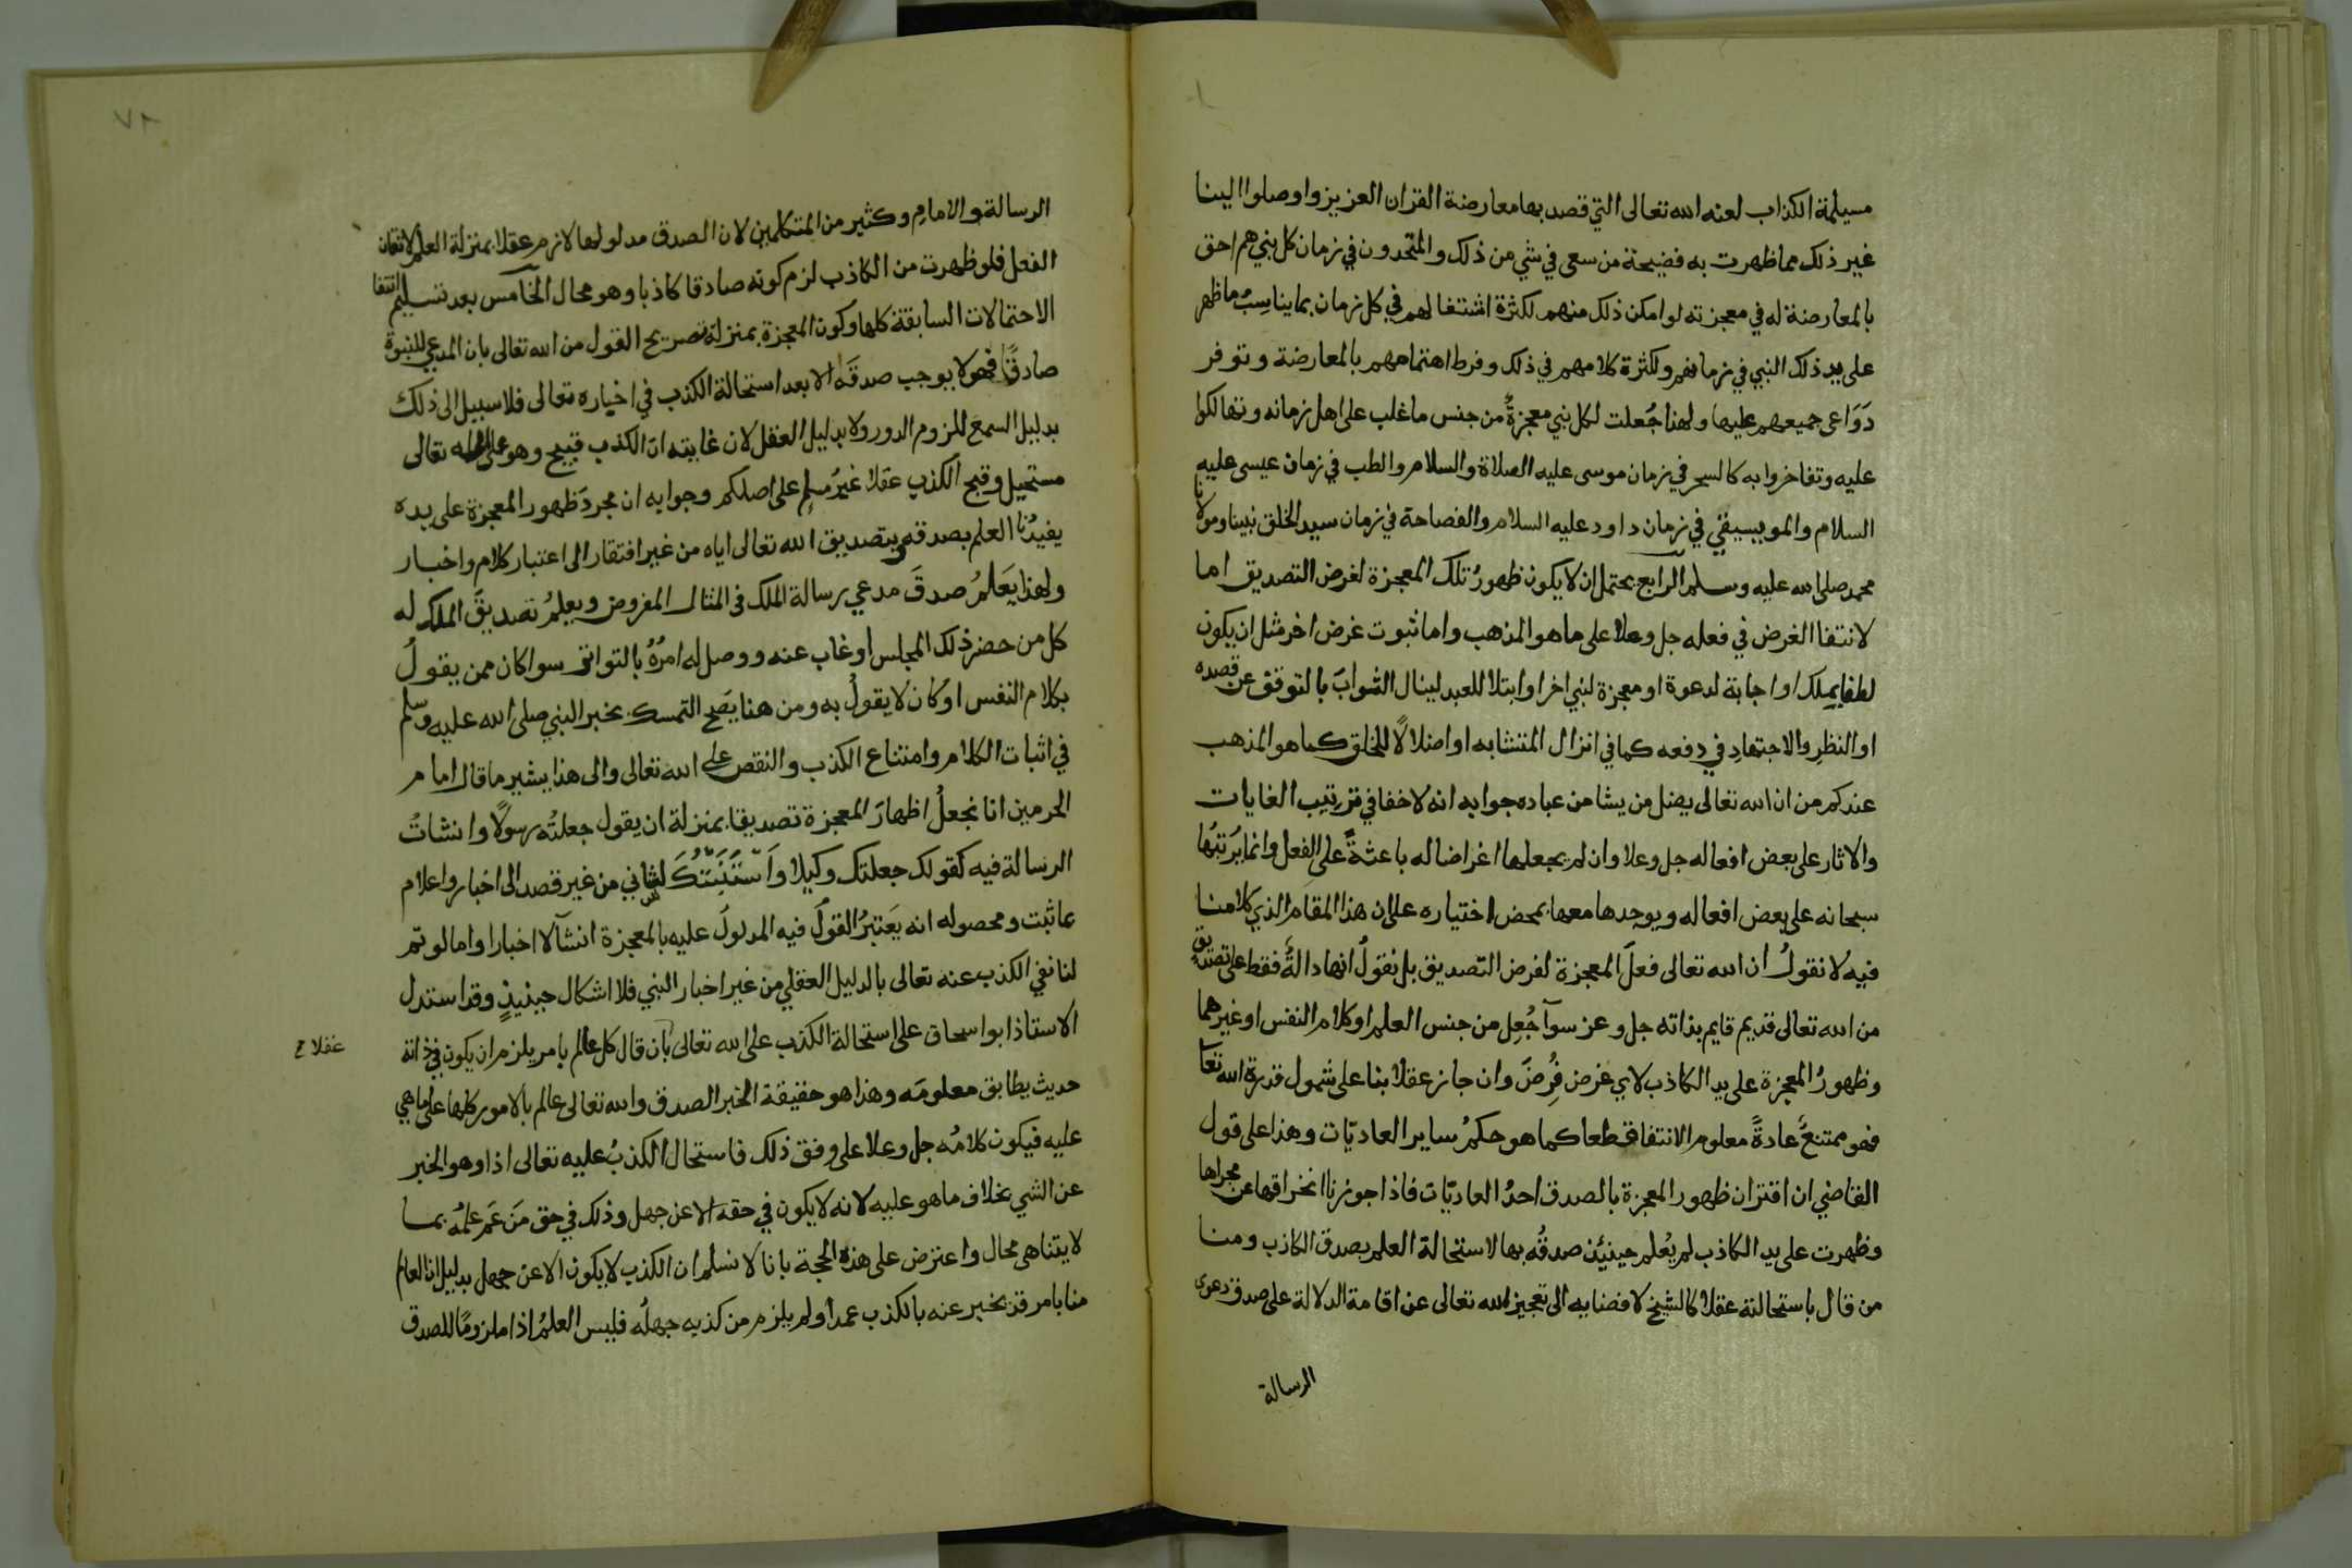 مسيلمة الكذاب لعنه الله تعالى التي قصد بها معارضة القران العزيز واوصلوا الينا
غير ذلك مما ظهرت به فضيحة من سعى في شي من ذلك والمتحدون في زمان كل نبي هم احق
بالمعارضة له في معجزته لو امكن ذلك منهم لكثرة اشتغالهم في كل زمان بما يناسبُ ما ظهر
على يد ذلك النبي في زمانهم ولكثرة كلامهم في ذلك وفرط اهتمامهم بالمعارضة وتوفر
دَوَاعى جميعهم عليها ولهذا جُعلت لكل نبي معجزةٌ من جنس ما غلب على اهل زمانه وتهالكوا
عليه وتفاخروا به كالسحر في زمان موسى عليه الصلاة والسلام والطب في زمان عيسى عليه
السلام والموسيقي في زمان داود عليه السلام والفصاحة في زمان سيد الخلق نبينا ومولانا
محمد صلى الله عليه وسلم الرابع يحتمل ان لا يكون ظهورُ تلك المعجزة لغرض التصديق اما
لانتفا الغرض في فعله جل وعلا على ما هو المذهب واما ثبوت غرض اخر مثل ان يكون
لطفا بملك او اجابة لدعوة او معجزة لنبي اخر او ابتلا للعبد لينال الثوابَ بالتوقف عن قصده
او النظرِ والاجتهادِ في دفعه كما في انزال المتشابه او اضلالًا للخلق كما هو المذهب
عندكم من ان الله تعالى يضل من يشا من عباده جوابه انه لا خفا في ترتيب الغايات
والاثار على بعض افعاله جل وعلا وان لم يجعلها اغراضا له باعثةً على الفعل وانما يرتبُها
سبحانه على بعض افعاله ويوجدها معها بمحض اختياره على ان هذا المقام الذي كلامنا
فيه لا نقولُ ان الله تعالى فعلَ المعجزة لغرض التصديق بل نقولُ انها دالةٌ فقط على تصديق
من الله تعالى قديم قايم بذاته جل وعز سوآ جُعِل من جنس العلم او كلام النفس او غيرهما
وظهورُ المعجزة على يد الكاذب لاي غرض فُرِضَ وان جاز عقلا بنا على شمول قدرة الله تعا
فهو ممتنعٌ عادةً معلوم الانتفا قطعا كما هو حكمُ ساير العاديّات وهذا على قول
القاضي ان اقتران ظهور المعجزة بالصدق احدُ العاديّات فاذا جوزنا انخراقها عن مجراها
وظهرت على يد الكاذب لم يُعلم حينئذ صدقُه بها لاستحالة العلم بصدق الكاذب ومنا
من قال باستحالته عقلا كالشيخ لافضايه الى تعجيز الله تعالى عن اقامة الدلالة على صدق دعوى
الرسالة
الرسالة والامامِ وكثير من المتكلمين لان الصدق مدلولها لازم عقلا بمنزلة العلم لاتقان
الفعل فلو ظهرت من الكاذب لزم كونه صادقا كاذبا وهو محال الخامس بعد تسليم انتفا
الاحتمالات السابقة كلها وكون المعجزة بمنزلة تصريح القول من الله تعالى بان المدعي للنبوة
صادقًا فهو لا يوجب صدقَه الا بعد استحالة الكذب في اخباره تعالى فلا سبيل الى ذلك
بدليل السمع للزوم الدور ولا بدليل العقل لان غايته ان الكذب قبيح وهو على الله تعالى
مستحيل وقبح الكذب عقلا غيرُ مسلم على اصلكم وجوابه ان مجردَ ظهور المعجزة على يده
يفيدُنا العلم بصدقه وبتصديق الله تعالى اياه من غير افتقار الى اعتبار كلام واخبار
ولهذا يَعَلمُ صدقَ مدعي رسالة الملك في المثال المفروض ويعلمُ تصديقَ الملك له
كل من حضر ذلك المجلس او غاب عنه ووصل له امرُهُ بالتواتر سوا كان ممن يقولُ
بكلام النفس او كان لا يقولُ به ومن هنا يَصَح التمسك بخبر النبي صلى الله عليه وسلم
في اثبات الكلام وامتناع الكذب والنقص على الله تعالى والى هذا يشير ما قال امام
الحرمين انا نجعلُ اظهارَ المعجزة تصديقا بمنزلة ان يقول جعلتُه رسولًا وانشاتُ
الرسالة فيه كقولك جعلتك وكيلا وَاَسْتَنَبْتُكَ لشاني من غير قصد الى اخبار واعلام
بما ثبت ومحصوله انه يَعَتبرُ القولُ فيه المدلولُ عليه بالمعجزة انشآ لا اخبارا واما لو تم
لنا نفي الكذب عنه تعالى بالدليل العقلي من غير اخبار النبي فلا اشكال حينيذٍ وقد استدل
الاستاذ ابو اسحاق على استحالة الكذب على الله تعالى بان قال كل عالم بامر يلزم ان يكون في ذاته
عقلا ح
حديث يطابق معلومَه وهذا هو حقيقة الخبر الصدق والله تعالى عالم بالامور كلها على ما هي
عليه فيكون كلامُه جل وعلا على وفق ذلك فاستحال الكذبُ عليه تعالى اذا وهو الخبر
عن الشي بخلاف ما هو عليه لانه لا يكون في حقه الا عن جهل وذلك في حق مَن عَم علمُه بما
لا يتناهى محال واعترض على هذه الحجة بانا لا نسلم ان الكذب لا يكون الا عن جهل بدليل ان العالم
منا بامر قد يخبر عنه بالكذب عمدا ولم يلزم من كذبه جهلُه فليس العلمُ اذا ملزومًا للصدق